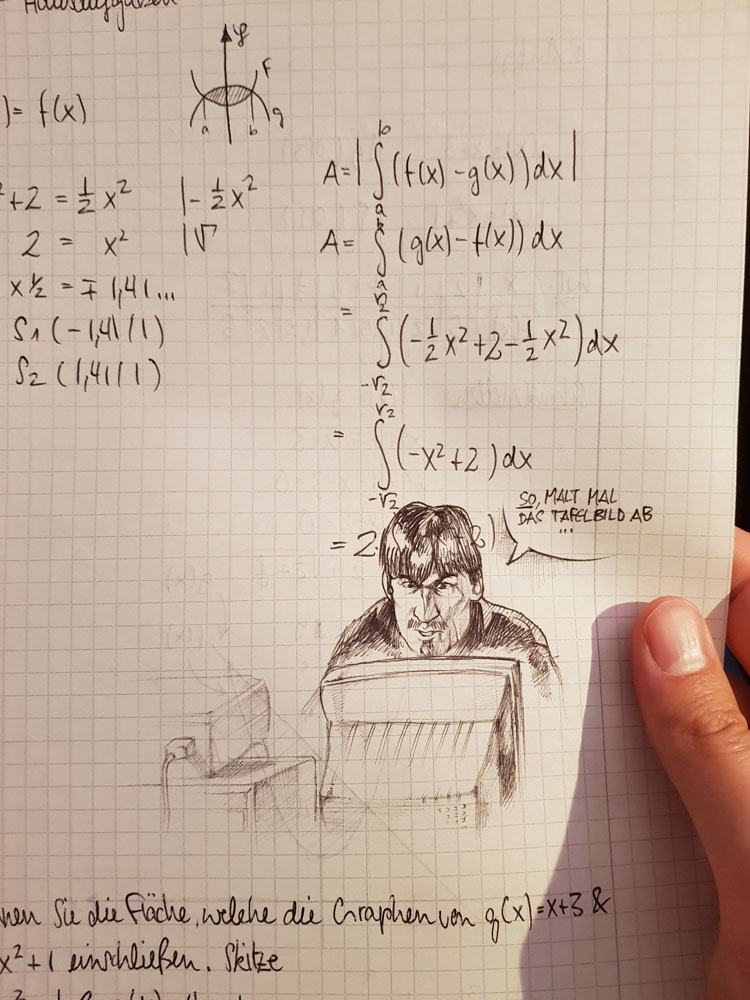 Hausaufgaben
y
f
g
a b
)= f(x)
²+2 = 1/2 x² |- 1/2 x²
2 = x² |√
x 1/2 = ∓ 1,41...
S1 (-1,41/1)
S2 (1,41/1)
A= | ∫ₐᵇ (f(x) - g(x)) dx |
A= ∫ₐᵇ (g(x) - f(x)) dx
= ∫ (-1/2 x² + 2 - 1/2 x²) dx √2 -√2
= ∫ (-x² + 2) dx √2 -√2
= 2·
SO, MALT MAL
DAS TAFELBILD AB
...
nen Sie die Fläche, welche die Graphen von g(x)=x+3 &
x²+1 einschließen. Skitze